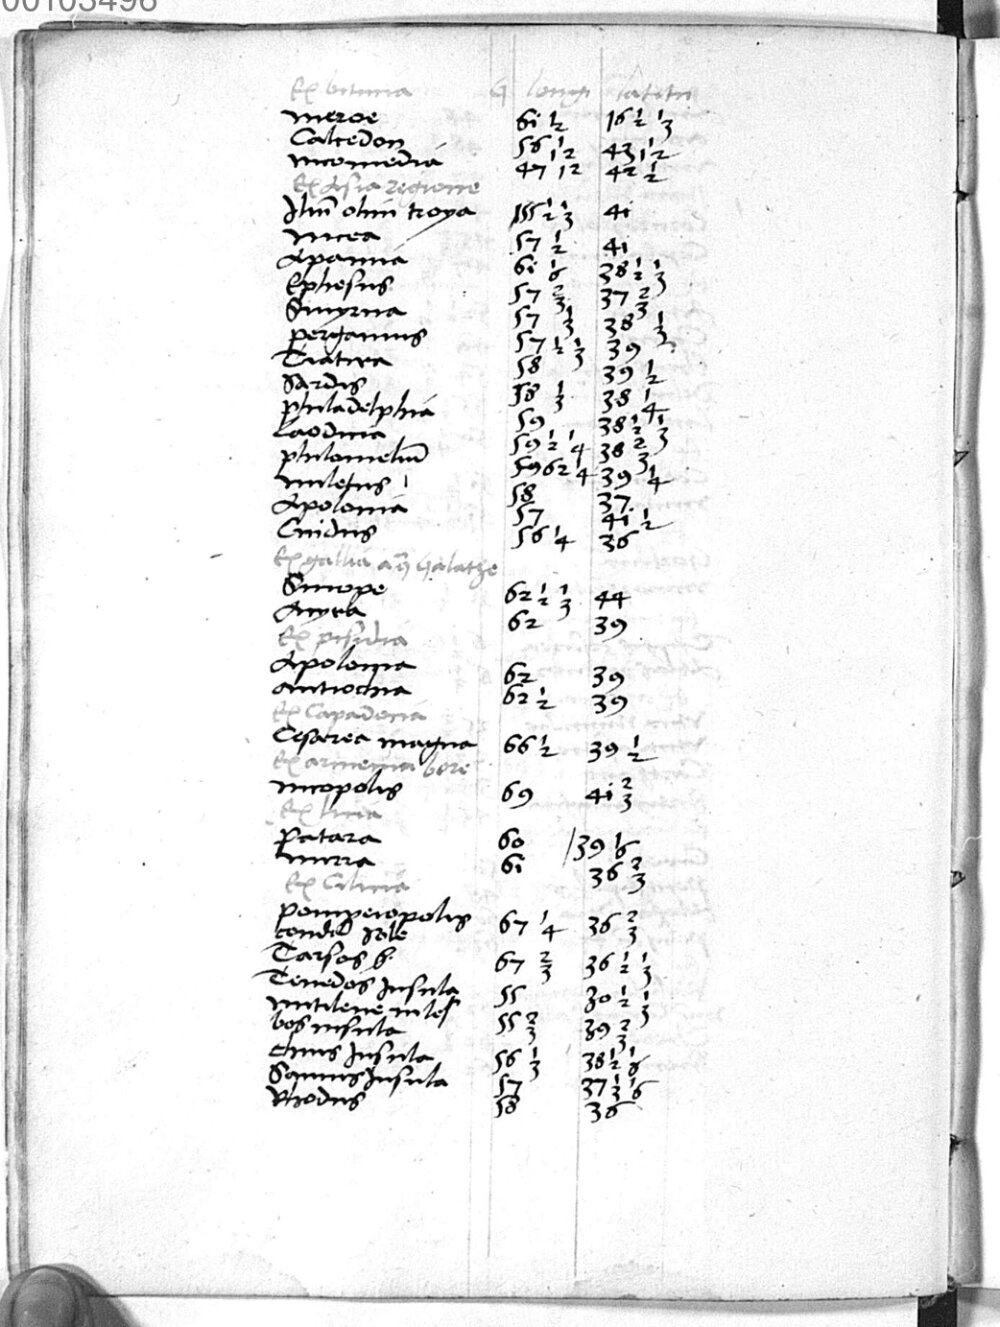 00103496
Ex bitinia G longi latitu
meroe 61 1/2 16 1/2 1/3
Calcedon 56 1/2 43 1/2
nicomedia 47 1/2 42 1/2
Ex Asia regione
Iliū olim troya 55 1/2 1/3 41
nicea 57 1/2 41
Apamia 61 1/6 38 1/2 1/3
Ephesus 57 2/3 37 2/3
Smyrna 57 1/3 38 1/3
pergamus 57 1/2 1/3 39
Tiatira 58 39 1/2
Sardis 58 1/3 38 1/4
philadelphia 59 38 1/2 1/3
Laodicia 59 1/2 1/4 38 2/3
philomeliū 59 62 1/4 39 1/4
miletus 58 37
Apolonia 57 41 1/2
Cnidus 56 1/4 36
Ex gallia galathe
Sinope 62 1/2 1/3 44
Ancyra 62 39
Ex pisidia
Apolonia 62 39
antiochia 62 1/2 39
Ex Capadocia
Cesarea magna 66 1/2 39 1/2
Ex armenia
nicopolis 69 41 2/3
Ex licia
Patara 60 39 1/6
mirra 61 36 2/3
Ex Cilicia
pompeiopolis 67 1/4 36 2/3
Tarsos 67 2/3 36 1/2 1/3
Tenedos Insula 55 30 1/2 1/3
mitilene in les
bos insula 55 2/3 39 2/3
chius Insula 56 1/3 38 1/2 1/6
Samus Insula 57 37 1/3 1/6
Rhodus 58 36